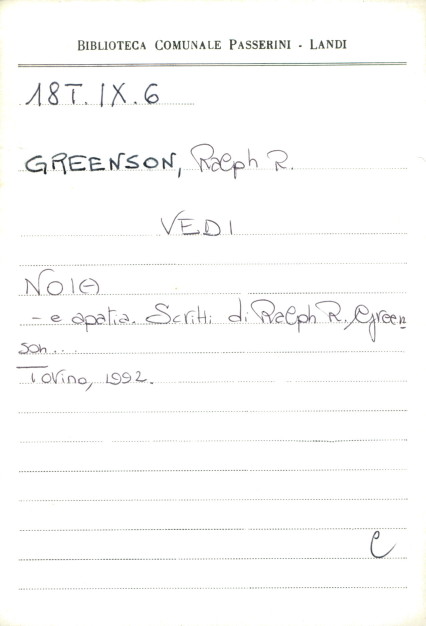 BIBLIOTECA COMUNALE PASSERINI - LANDI
18T.IX.6
GREENSON, Ralph R.
VEDI
NOIA
- e apatia. Scritti di Ralph R. Green
son...
Torino, 1992.
C